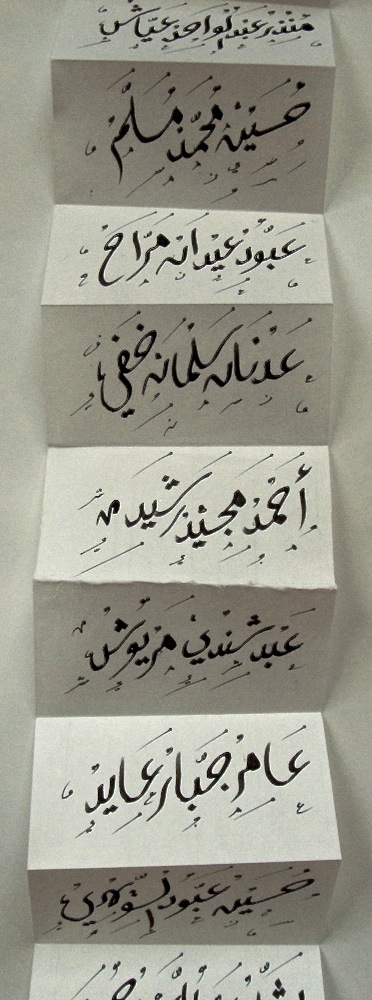 منذر عبد الواحد عياش
حسين محمد مسلم
عبود عيدان مزاح
عدنان سلمان خفي
أحمد مجيد رشيد
عبد شندي مريوش
عامر جبار عايد
حسين عبود